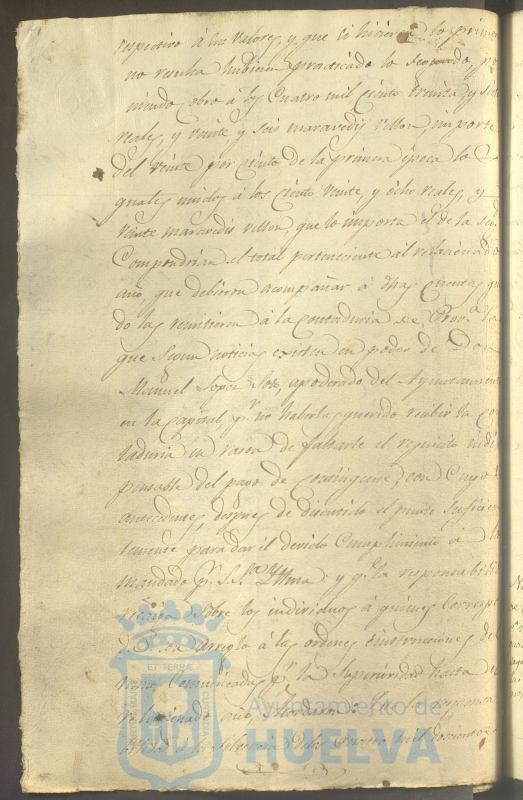 respectivo á los valores, y que si hicieron lo primero
no resulta hubiesen practicado lo segundo, po
niendo cobro á los cuatro mil ciento treinta y siete
reales, y veinte y seis maravedis vellon, importe
del veinte por ciento de la primera época los
quales unidos á los ciento veinte, y ocho reales, y
veinte maravedis vellon, que lo importa el de la seg.
Compondrian el total perteneciente al relacionado
año, que debieron acompañar á dhas cuentas, quan
do las remitieron á la contaduria de Prov.ª la
que segun noticias existen en poder de Don
Manuel Lopez apoderado del Ayuntamiento
en la capital, pr no haberlas querido recibir la Con
taduria en razon de faltarle el requisito indis
pensable del pago de contingente; con cuyos
antecedentes, despues de discutido el punto suficien
temente para dar el devido cumplimiento á lo
mandado pr S.S. Yltma y qe la responsabili
sobre los individuos á quienes corresp
arreglo á las ordenes é instrucciones del
comunicadas pr la superioridad hasta el
relacionado año, Acordaron:
cuatro mil doscientos
ET TERRAE
Ayuntamiento de
HUELVA